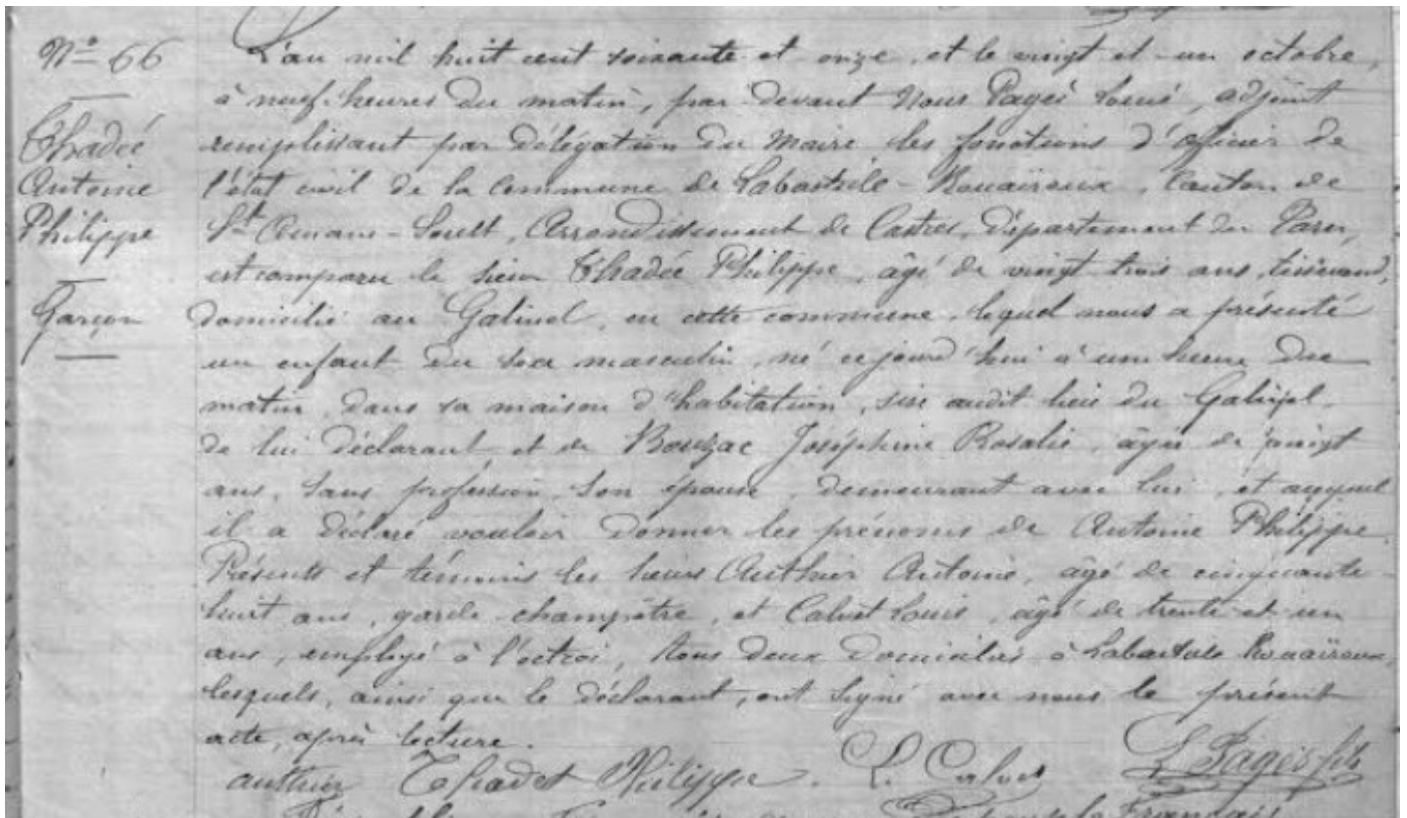 N° 66
Thadée
Antoine
Philippe
Garçon
L'an mil huit cent soixante et onze, et le vingt et un octobre,
à neuf heures du matin, par devant Nous Pagès Louis, adjoint
remplissant par délégation du Maire les fonctions d'officier de
l'état civil de la Commune de Labastide-Rouairoux, Canton de
St Amans-Soult, Arrondissement de Castres, Département du Tarn,
est comparu le sieur Thadée Philippe, âgé de vingt trois ans, tisserand,
domicilié au Galinel, en cette commune, lequel nous a présenté
un enfant du sexe masculin, né cejourd'hui à une heure du
matin, dans sa maison d'habitation, sise audit lieu du
de lui déclarant et de Bouzac Joséphine Rosalie, âgée de vingt
ans, sans profession, son épouse, demeurant avec lui, et auquel
il a déclaré vouloir donner les prénoms de Antoine Philippe.
Présents et témoins les sieurs Authier Antoine, âgé de cinquante-
huit ans, garde champêtre, et Calvet Louis, âgé de trente et un
ans, employé à l'octroi, tous deux domiciliés à Labastide Rouairoux,
lesquels, ainsi que le déclarant, ont signé avec nous le présent
acte, après lecture.
authier Thadet Philippe. L. Calvet L Pagès fils